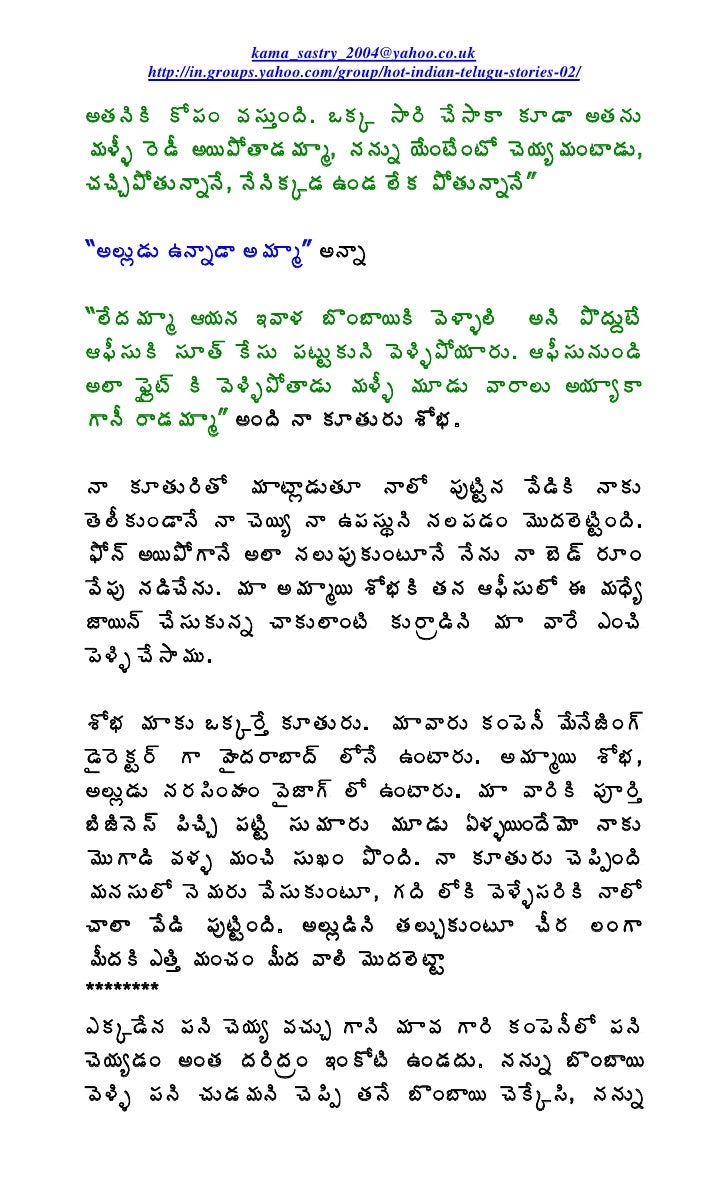 kama_sastry_2004@yahoo.co.uk
http://in.groups.yahoo.com/group/hot-indian-telugu-stories-02/
అతనికి కోపం వస్తుంది. ఒక్క సారి చేసాకా కూడా అతను
మళ్ళీ రెడీ అయిపోతాడమ్మా, నన్ను యేంటేంటో చెయ్యమంటాడు,
చచ్చిపోతున్నానే, నేనిక్కడ ఉండ లేక పోతున్నానే”
“అల్లుడు ఉన్నాడా అమ్మా” అన్నా
“లేదమ్మా ఆయన ఇవాళ బొంబాయికి వెళ్ళాలి అని పొద్దుటే
ఆఫీసుకి సూత్ కేసు పట్టుకుని వెళ్ళిపోయారు. ఆఫీసునుండి
అలా ఫ్లైట్ కి వెళ్ళిపోతాడు మళ్ళీ మూడు వారాలు అయ్యాకా
గానీ రాడమ్మా” అంది నా కూతురు శోభ.
నా కూతురితో మాట్లాడుతూ నాలో పుట్టిన వేడికి నాకు
తెలీకుండానే నా చెయ్యి నా ఉపస్థుని నలపడం మొదలెట్టింది.
ఫోన్ అయిపోగానే అలా నలుపుకుంటూనే నేను నా బెడ్ రూం
వేపు నడిచేను. మా అమ్మాయి శోభకి తన ఆఫీసులో ఈ మధ్యే
జాయిన్ చేసుకున్న చాకులాంటి కుర్రాడిని మా వారే ఎంచి
పెళ్ళి చేసాము.
శోభ మాకు ఒక్కర్తే కూతురు. మావారు కంపెనీ మేనేజింగ్
డైరెక్టర్ గా హైదరాబాద్ లోనే ఉంటారు. అమ్మాయి శోభ,
అల్లుడు నరసింహం వైజాగ్ లో ఉంటారు. మా వారికి పూర్తి
బిజినెస్ పిచ్చి పట్టి సుమారు మూడు ఏళ్ళయిందేమో నాకు
మొగాడి వళ్ళ మంచి సుఖం పొంది. నా కూతురు చెప్పింది
మనసులో నెమరు వేసుకుంటూ, గది లోకి వెళ్ళేసరికి నాలో
చాలా వేడి పుట్టింది. అల్లుడిని తల్చుకుంటూ చీర లంగా
మీదకి ఎత్తి మంచం మీద వాలి మొదలెట్టా
********
ఎక్కడేన పని చెయ్య వచ్చు గాని మావ గారి కంపెనీలో పని
చెయ్యడం అంత దరిద్రం ఇంకోటి ఉండదు. నన్ను బొంబాయి
వెళ్ళి పని చుడమని చెప్పి తనే బొంబాయి చెక్కేసి, నన్ను